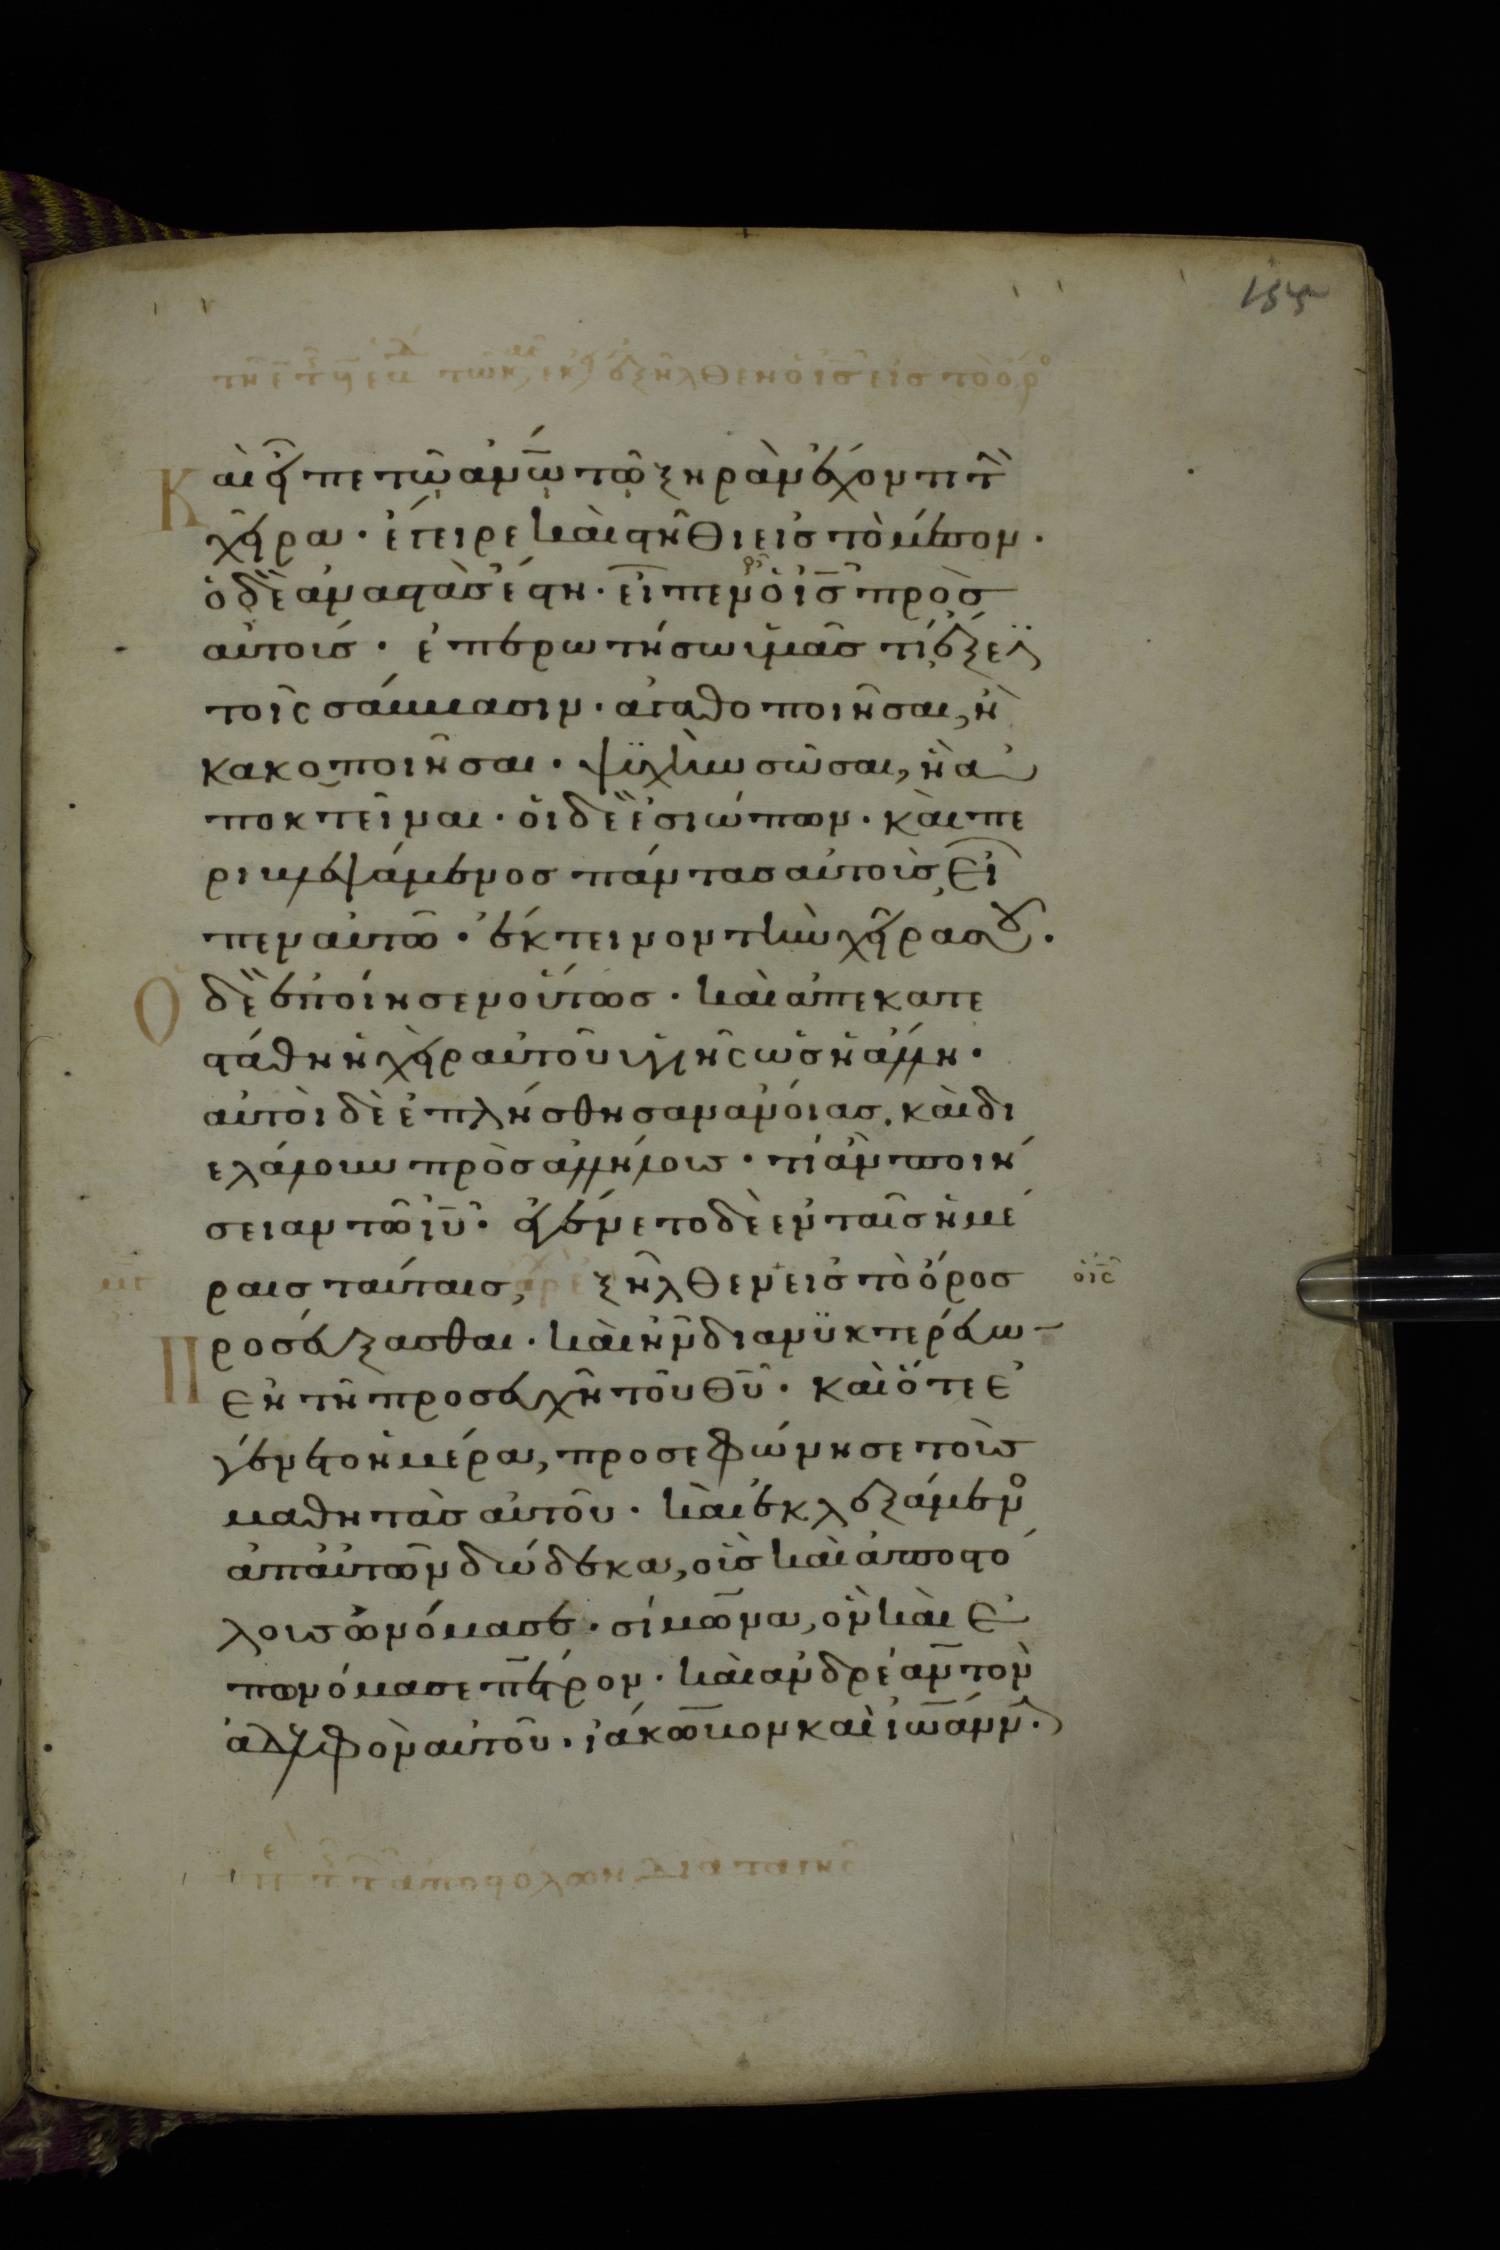 ἐξῆλθεν ὁ ις εἰς τὸ ὄρο
Καὶ εἶπε τῷ ἀνῳ τῷ ξηρὰν ἔχοντι τ
χεῖρα · ἔγειρε καὶ στῆθι εἰς τὸ μέσον ·
ὁ δὲ ἀναστὰς ἔστη · εἶπεν οὖν ὁ ις πρὸς
αὐτούς · ἐπερωτήσω ὑμᾶς τί ἔξεσ
τοῖς σάββασιν · ἀγαθοποιῆσαι, ἢ
κακοποιῆσαι · ψυχὴν σῶσαι, ἢ ἀ
ποκτεῖναι · οἱ δὲ ἐσιώπων · καὶ πε
ριβλεψάμενος πάντας αὐτοὺς, εἶ
πεν αὐτῶ · ἔκτεινον τὴν χεῖρά σου ·
Ὁ δὲ ἐποίησεν οὕτως · καὶ ἀπεκατε
στάθη ἡ χεὶρ αὐτοῦ ὑγιὴς ὡς ἡ ἄλλη ·
αὐτοὶ δὲ ἐπλήσθησαν ἀνοίας, καὶ δι
ελάλουν πρὸς ἀλλήλους · τί ἂν ποιή
σειαν τῶ ιυ · ἐγένετο δὲ ἐν ταῖς ἡμέ
ραις ταύταις, ἐξῆλθεν εἰς τὸ ὄρος ὁ ις
Προσεύξασθαι · καὶ ἦν διανυκτερεύω
ἐν τῆ προσευχῆ τοῦ θυ · καὶ ὅτε ἐ
γένετο ἡμέρα, προσεφώνησε τοὺς
μαθητὰς αὐτοῦ · καὶ ἐκλεξάμενο
ἀπ αὐτῶν δώδεκα, οὓς καὶ ἀποστό
λους ὠνόμασε · σίμωνα, ὃν καὶ ἐ
πωνόμασε πέτρον · καὶ ἀνδρέαν τὸν
ἀδελφὸν αὐτοῦ · ἰάκωβον καὶ ἰωάνν